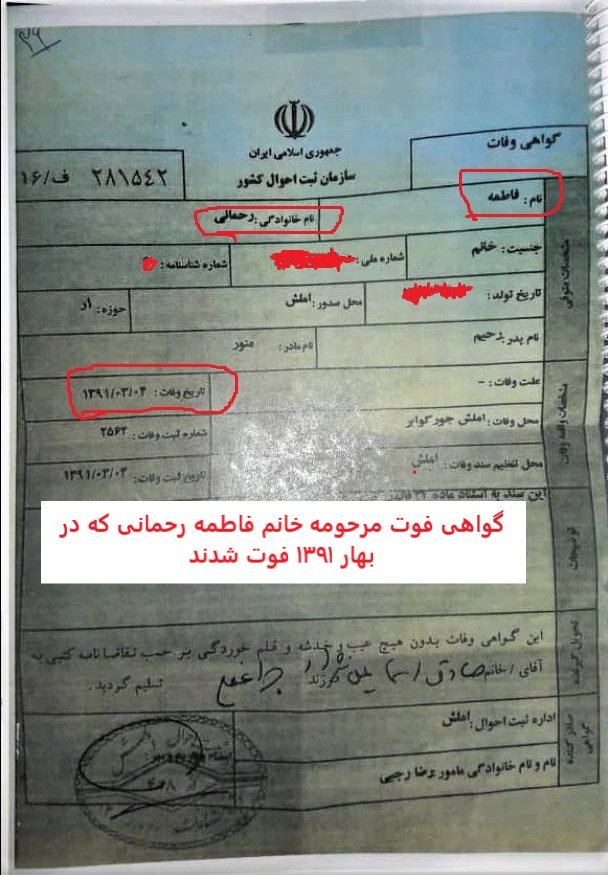 گواهی وفات
جمهوری اسلامی ایران
سازمان ثبت احوال کشور
۲۸۱۵۴۲ ف/۱۶
مشخصات متوفی
نام: فاطمه
نام خانوادگی: رحمانی
جنسیت: خانم
شماره ملی:
شماره شناسنامه:
تاریخ تولد:
محل صدور: املش
حوزه: ار
نام پدر: رحیم
نام مادر: منور
مشخصات واقعه وفات
علت وفات: -
تاریخ وفات: ۱۳۹۱/۰۳/۰۴
محل وفات: املش جورگوابر
شماره ثبت وفات: ۲۵۶۳
محل تنظیم سند وفات: املش
تاریخ ثبت وفات: ۱۳۹۱/۰۳/۰۴
این سند به استناد ماده ۲۲
گواهی فوت مرحومه خانم فاطمه رحمانی که در
بهار ۱۳۹۱ فوت شدند
توضیحات
تحویل گیرنده
این گواهی وفات بدون هیچ عیب و خدشه و قلم خوردگی بر حسب تقاضا نامه کتبی به
آقای/خانم صادق فرزند تسلیم گردید.
صادر کننده گواهی
اداره ثبت احوال: املش
نام و نام خانوادگی مامور: رضا رجبی